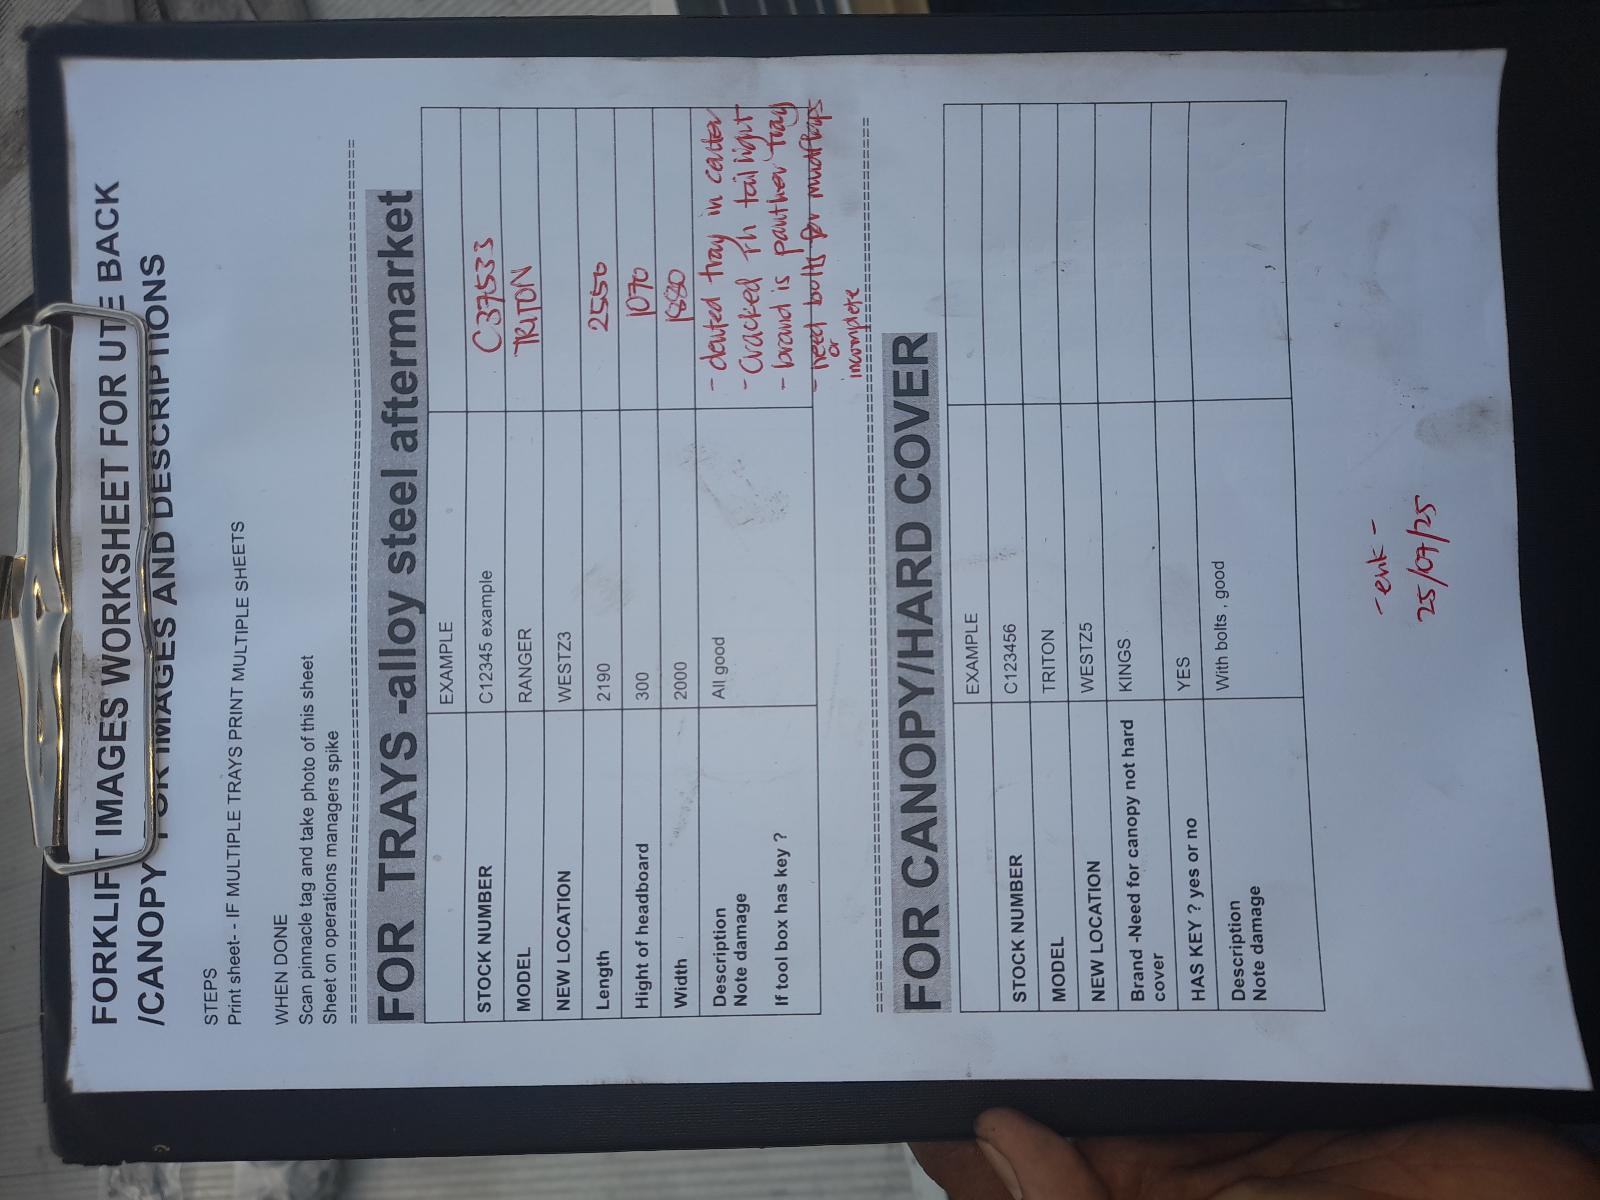 FORKLIFT IMAGES WORKSHEET FOR UTE BACK
/CANOPY FOR IMAGES AND DESCRIPTIONS
STEPS
Print sheet- - IF MULTIPLE TRAYS PRINT MULTIPLE SHEETS
WHEN DONE
Scan pinnacle tag and take photo of this sheet
Sheet on operations managers spike
FOR TRAYS -alloy steel aftermarket
EXAMPLE
STOCK NUMBER C12345 example C37533
MODEL RANGER TRITON
NEW LOCATION WESTZ3
Length 2190 2550
Hight of headboard 300 1070
Width 2000 1880
Description All good - dented tray in center
Note damage - Cracked rh tail light
- brand is panther tray
If tool box has key ?
- need bolts for mudflaps
or
incomplete
FOR CANOPY/HARD COVER
EXAMPLE
STOCK NUMBER C123456
MODEL TRITON
NEW LOCATION WESTZ5
Brand -Need for canopy not hard KINGS
cover
HAS KEY ? yes or no YES
Description With bolts , good
Note damage
25/07/25